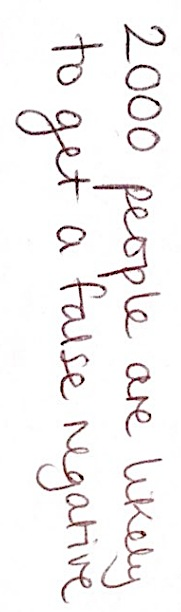 2000 people are likely
to get a false negative